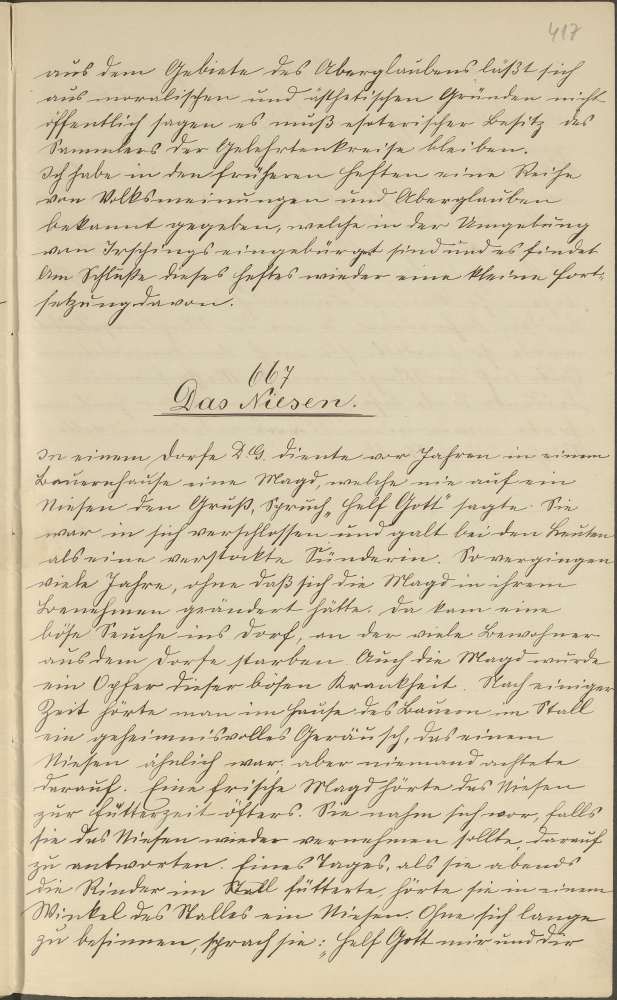 417
aus dem Gebiete des Aberglaubens läßt sich
aus moralischen und ästhetischen Gründen nicht
öffentlich sagen es muß esoterischer Besitz des
Sammlers der Gelehrtenkreise bleiben.
Ich habe in den früheren Heften eine Reihe
von Volksmeinungen und Aberglauben
bekannt gegeben, welche in der Umgebung
von Irschings eingebürgt sind und es findet
Am Schluße dieses Heftes wieder eine kleine Fort-
setzung davon.
667
Das Niesen.
In einem Dorfe D. G. diente vor Jahren in einem
Bauernhause eine Magd, welche nie auf ein
Niesen den Gruß, Spruch „Helf Gott" sagte. Sie
war in sich verschlossen und galt bei den Leuten
als eine verstockte Sünderin. So vergingen
viele Jahre, ohne daß sich die Magd in ihrem
Benehmen geändert hätte. Da kam eine
böse Seuche ins Dorf, an der viele Bewohner
aus dem Dorfe starben. Auch die Magd wurde
ein Opfer dieser bösen Krankheit. Nach einiger
Zeit hörte man im Hause des Bauern im Stall
ein geheimnisvolles Geräusch, das einem
Niesen ähnlich war, aber niemand achtete
darauf. Eine frische Magd hörte das Niesen
zur Fütterzeit öfters. Sie nahm sich vor, falls
sie das Niesen wieder vernehmen sollte, darauf
zu antworten. Eines Tages, als sie abends
die Rinder im Stall fütterte, hörte sie in einem
Winkel des Stalles ein Niesen. Ohne sich lange
zu besinnen, sprach sie: „Helf Gott mir und dir